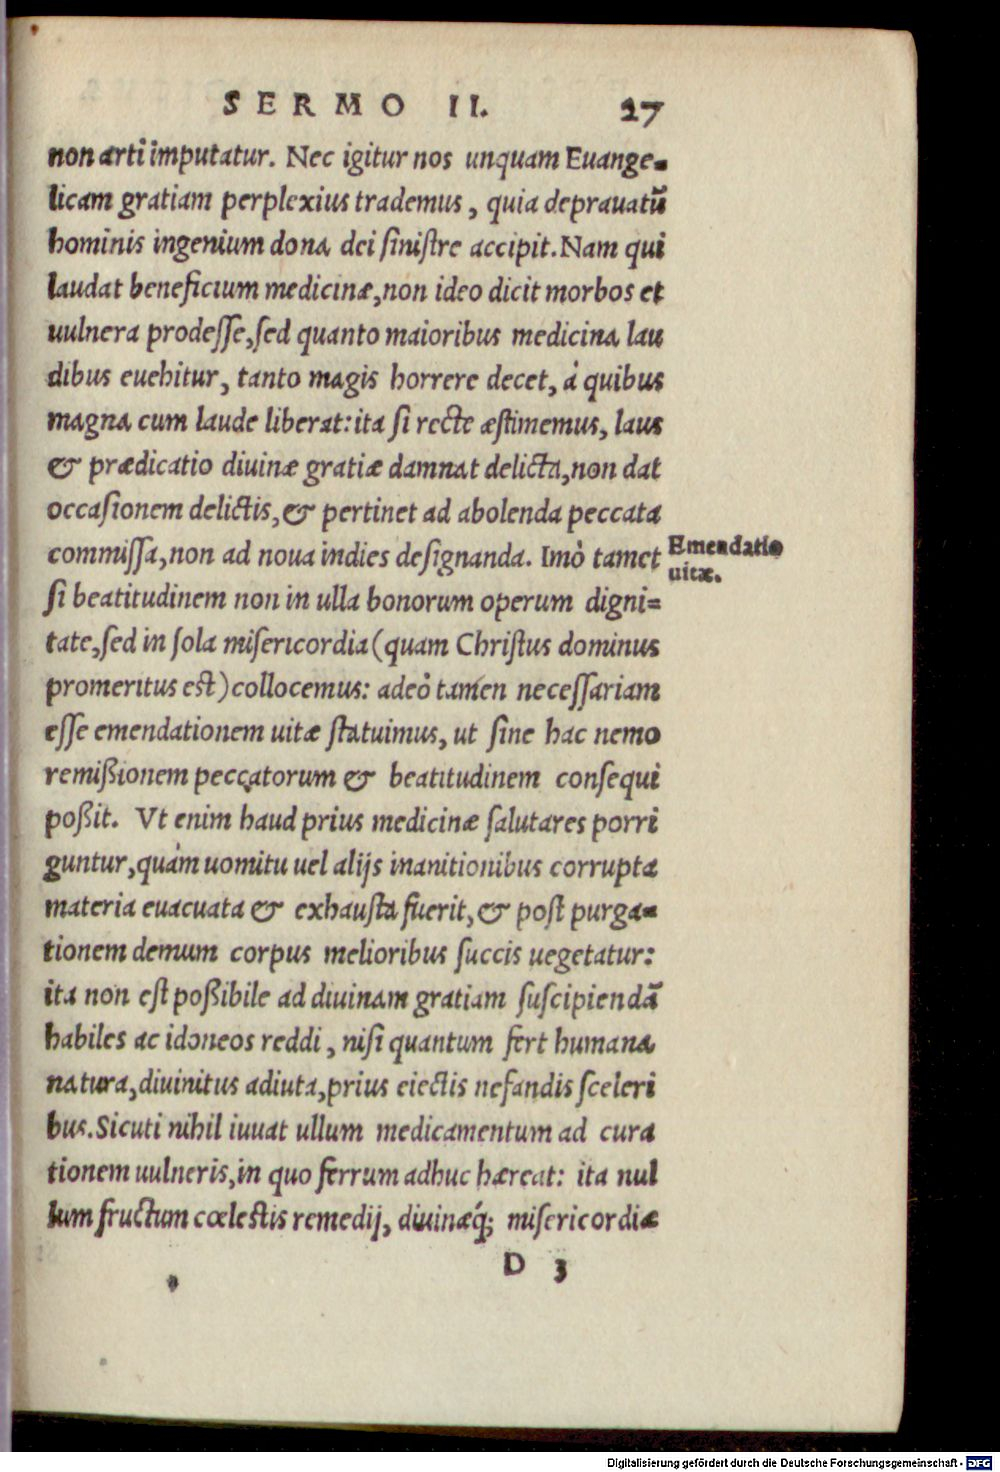 SERMO II. 27
non arti imputatur. Nec igitur nos unquam Euange-
licam gratiam perplexius trademus, quia deprauatũ
hominis ingenium dona dei sinistre accipit. Nam qui
laudat beneficium medicinæ, non ideo dicit morbos et
uulnera prodesse, sed quanto maioribus medicina lau
dibus euehitur, tanto magis horrere decet, à quibus
magna cum laude liberat: ita si recte æstimemus, laus
& prædicatio diuinæ gratiæ damnat delicta, non dat
occasionem delictis, & pertinet ad abolenda peccata
commissa, non ad noua indies designanda. Imò tamet
Emendatio
uitæ.
si beatitudinem non in ulla bonorum operum digni=
tate, sed in sola misericordia (quam Christus dominus
promeritus est) collocemus: adeò tamen necessariam
esse emendationem uitæ statuimus, ut sine hac nemo
remißionem peccatorum & beatitudinem consequi
poßit. Vt enim haud prius medicinæ salutares porri
guntur, quàm uomitu uel alijs inanitionibus corrupta
materia euacuata & exhausta fuerit, & post purga-
tionem demum corpus melioribus succis uegetatur:
ita non est poßibile ad diuinam gratiam suscipiendã
habiles ac idoneos reddi, nisi quantum fert humana
natura, diuinitus adiuta, prius eiectis nefandis sceleri
bus. Sicuti nihil iuuat ullum medicamentum ad cura
tionem uulneris, in quo ferrum adhuc hæreat: ita nul
lum fructum cœlestis remedij, diuinæq́; misericordiæ
D 3
Digitalisierung gefördert durch die Deutsche Forschungsgemeinschaft - DFG